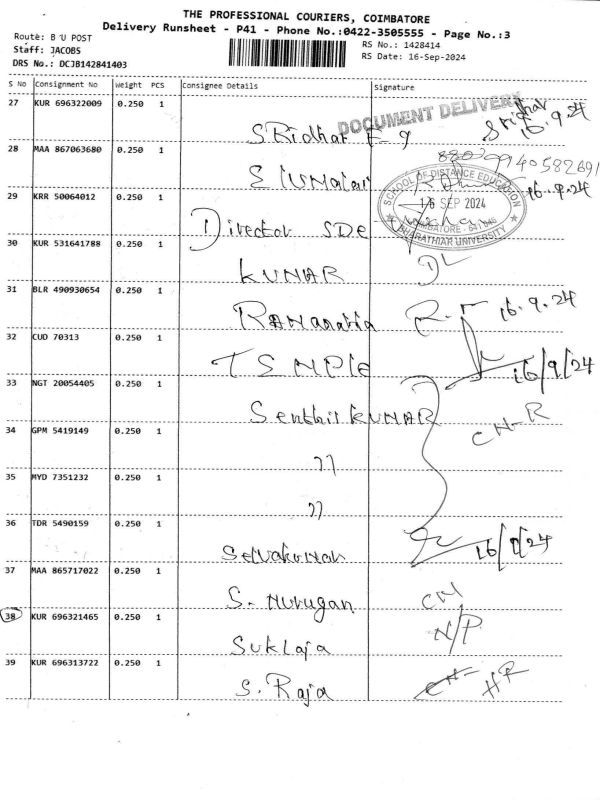 THE PROFESSIONAL COURIERS, COIMBATORE
Delivery Runsheet - P41 - Phone No.:0422-3505555 - Page No.:3
Route: B U POST
Staff: JACOBS
DRS No.: DCJB142841403
RS No.: 1428414
RS Date: 16-Sep-2024
S No Consignment No Weight PCS Consignee Details Signature
27 KUR 696322009 0.250 1 SRidhar 16.9.24
DOCUMENT DELIVERY
28 MAA 867063680 0.250 1
29 KRR 50064012 0.250 1 Director SDE 16.9.24
SCHOOL OF DISTANCE EDUCATION
16 SEP 2024
COIMBATORE - 641 046
BHARATHIAR UNIVERSITY
30 KUR 531641788 0.250 1 KUNAR DL
31 BLR 490930654 0.250 1 16.9.24
32 CUD 70313 0.250 1 16/9/24
33 NGT 20054405 0.250 1 Senthil KUNAR
34 GPM 5419149 0.250 1 "
35 MYD 7351232 0.250 1 "
36 TDR 5490159 0.250 1 Selvakunar
37 MAA 865717022 0.250 1 S. Nurugan
38 KUR 696321465 0.250 1 Suklaja N/P
39 KUR 696313722 0.250 1 S. Raja